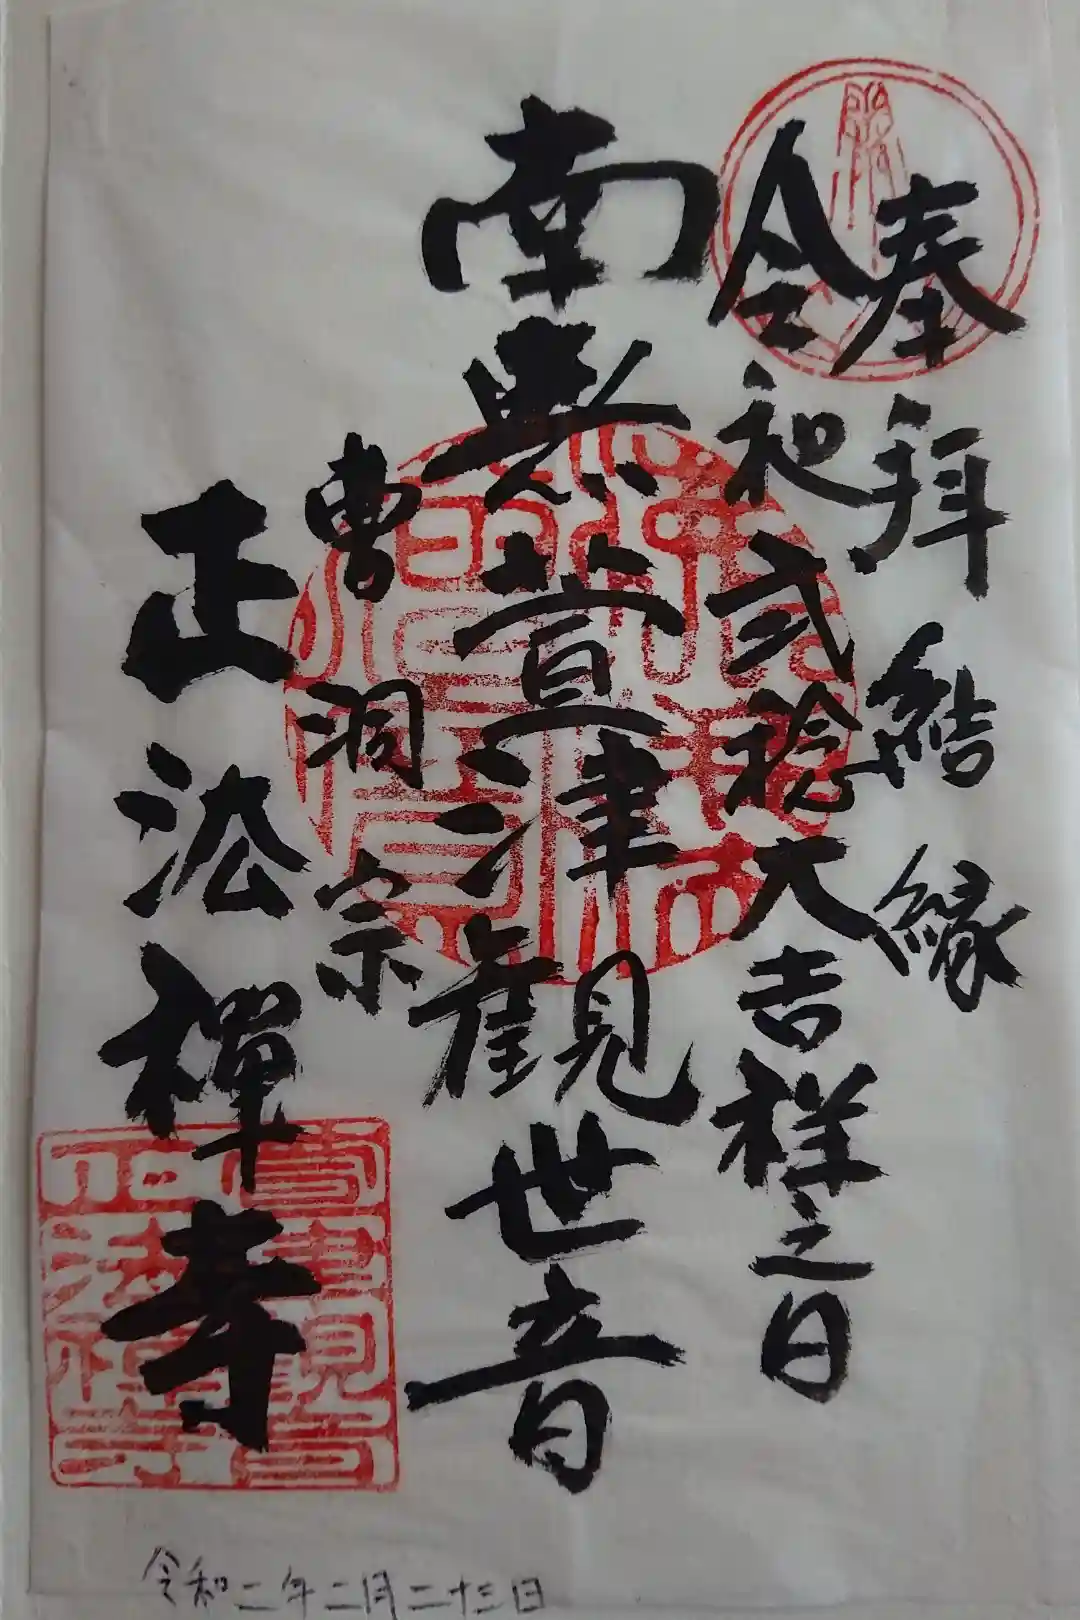 奉拝 結縁
令和弐稔大吉祥之日
南無萱津観世音
曹洞宗
正法禅寺
令和二年二月二十三日